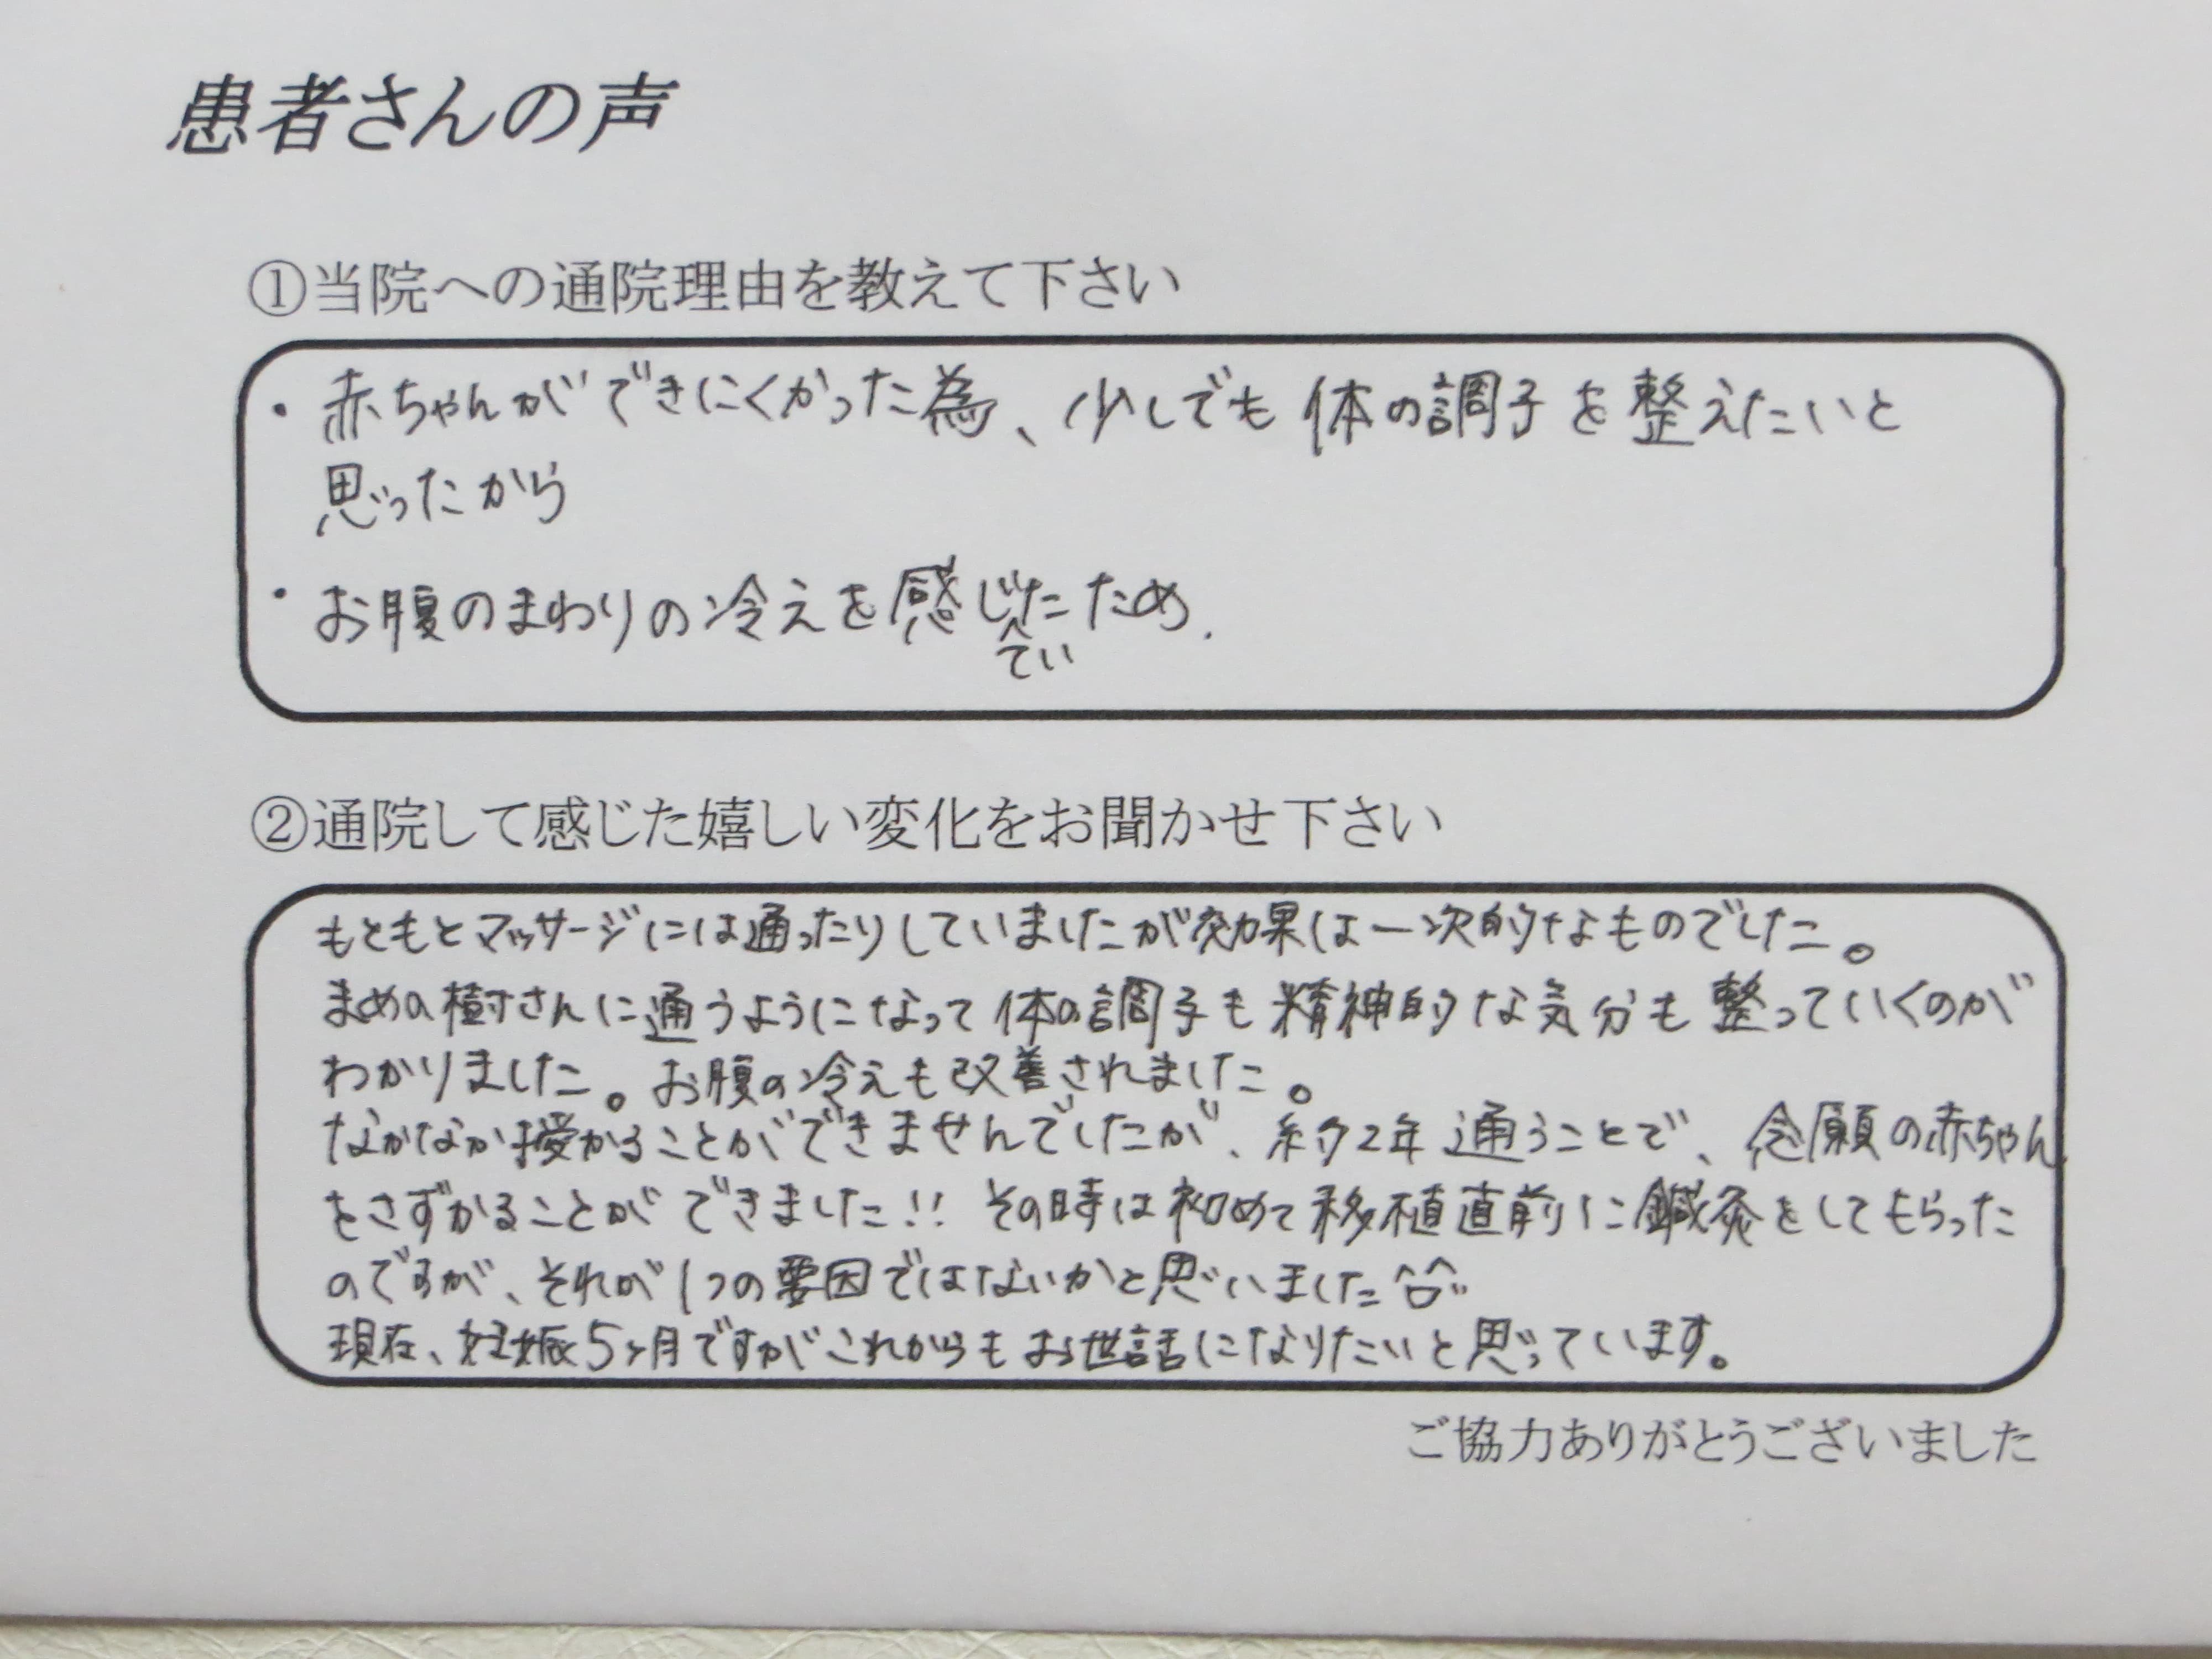 患者さんの声
①当院への通院理由を教えて下さい
・赤ちゃんができにくかった為、少しでも体の調子を整えたいと
思ったから
・お腹のまわりの冷えを感じたため.
てい
②通院して感じた嬉しい変化をお聞かせ下さい
もともとマッサージには通ったりしていましたが効果は一次的なものでした。
まめの樹さんに通うようになって体の調子も精神的な気分も整っていくのが
わかりました。お腹の冷えも改善されました。
なかなか授かることができませんでしたが、約2年通うことで、念願の赤ちゃん
をさずかることができました!! その時は初めて移植直前に鍼灸をしてもらった
のですが、それが1つの要因ではないかと思いました^□^
現在、妊娠5ヶ月ですがこれからもお世話になりたいと思っています。
ご協力ありがとうございました